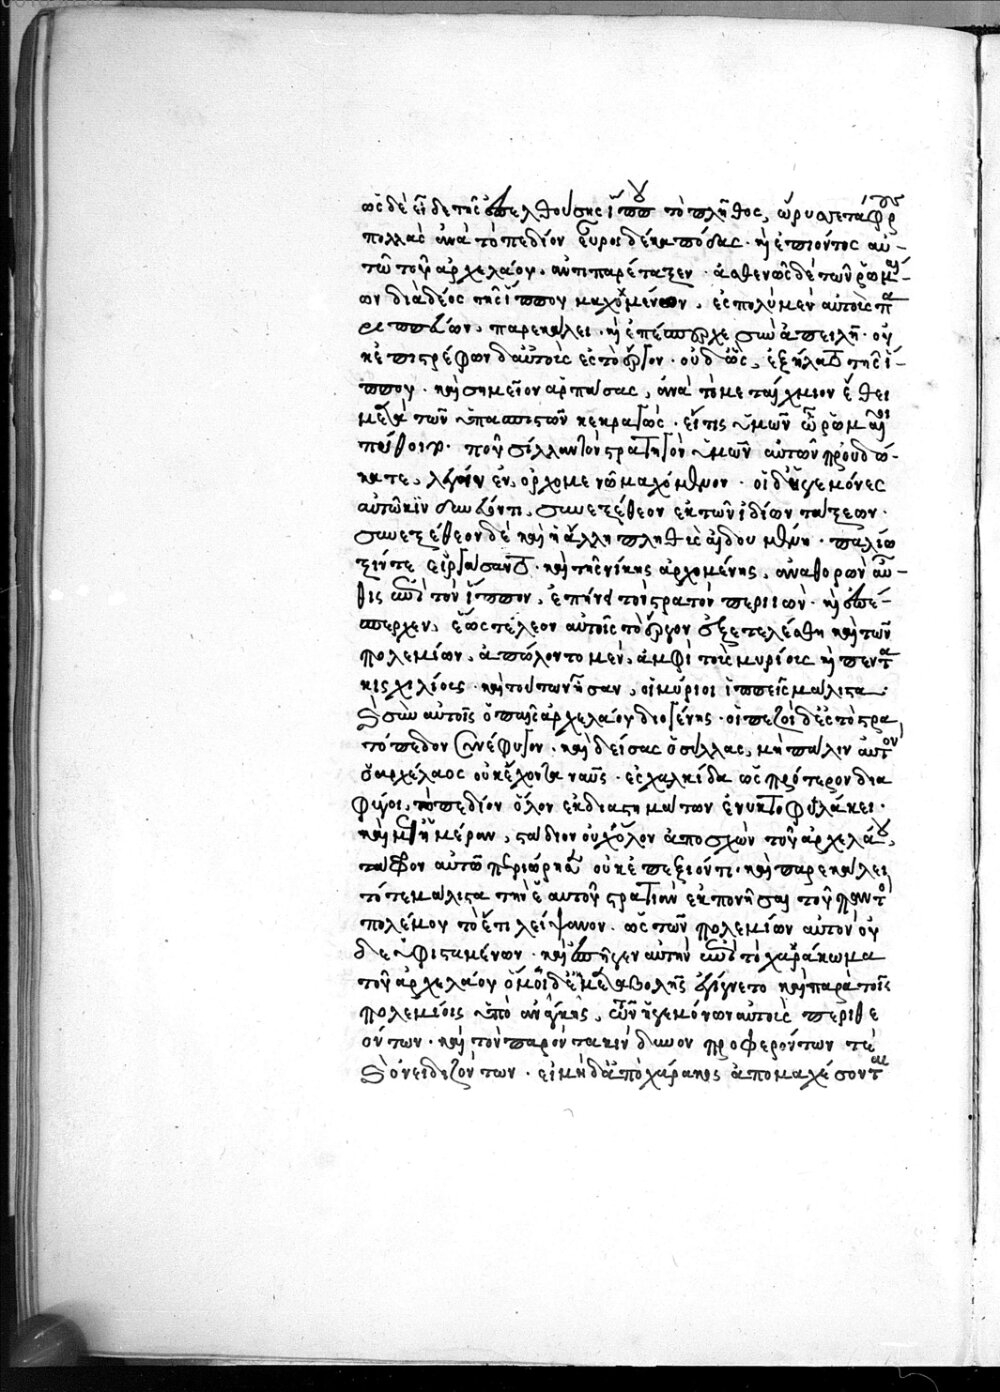 ὡς δὲ εἶδε τῆς ἀπελθούσης ἵππου τὸ πλῆθος, ὤρυσσε τάφρους
πολλὰς ἀνὰ τὸ πεδίον εὖρος δέκα πόδας· καὶ ἐπιόντος αὐ-
τῷ τοῦ ἀρχελάου, ἀντιπαρέταξεν· ἀσθενῶς δὲ τῶν ῥωμαί-
ων διὰ δέος τῆς ἵππου μαχομένων, ἐς πολὺ μὲν αὐτοῖς πα
ριππεύων, παρεκάλει· καὶ ἐπέσπερχε σὺν ἀπειλῇ· οὐ
κ ἐπιστρέφων δ' αὐτοὺς ἐς τὸ ἔργον· οὐδ' ὣς, ἐξήλατο τῆς ἵ-
ππου· καὶ σημεῖον ἁρπάσας, ἀνὰ τὸ μεταίχμιον ἔθει
μετὰ τῶν ὑπασπιστῶν κεκραγώς· εἴ τις ὑμῶν ὦ ῥωμαῖοι
πύθοιτο· ποῦ σύλλαν τὸν στρατηγὸν ὑμῶν αὐτῶν προυδώ-
κατε, λέγειν ἐν ὀρχομενῷ μαχόμενον· οἱ δ' ἡγεμόνες
αὐτῷ κινδυνεύοντι, συνεξέθεον ἐκ τῶν ἰδίων τάξεων·
συνεξέθεον δὲ καὶ ἡ ἄλλη πληθὺς αἰδουμένη· παλίω
ξίν τε εἰργάσαντο· καὶ τῆς νίκης ἀρχομένης, ἀναθορὼν αὖ-
θις ἐπὶ τὸν ἵππον, ἐπῄνει τὸν στρατὸν περιιὼν· καὶ ἐπέ-
σπερχεν, ἕως τέλεον αὐτοῖς τὸ ἔργον ἐξετελέσθη καὶ τῶν
πολεμίων, ἀπώλοντο μὲν, ἀμφὶ τοὺς μυρίους καὶ πεντα
κισχιλίους· καὶ τούτων ἦσαν, οἱ μύριοι ἱππεῖς μάλιστα·
καὶ σὺν αὐτοῖς ὁ παῖς ἀρχελάου διογένης· οἱ πεζοὶ δ' ἐς τὸ στρα
τόπεδον συνέφυγον· καὶ δείσας ὁ σύλλας, μὴ πάλιν αὐτὸν
ὁ ἀρχέλαος οὐκ ἔχοντα ναῦς· ἐς χαλκίδα ὡς πρότερον δια
φύγοι, τὸ πεδίον ὅλον ἐκ διαστημάτων ἐνυκτοφυλάκει·
καὶ μεθ' ἡμέραν, στάδιον οὐχ ὅλον ἀποσχὼν τοῦ ἀρχελάου
τάφρον αὐτῷ περιώρυττεν οὐκ ἐπεξιόντι· καὶ παρεκάλει
τότε μάλιστα τὴν ἑαυτοῦ στρατιὰν ἐκπονῆσαι τοῦ παντὸς
πολέμου τὸ ἔτι λείψανον· ὡς τῶν πολεμίων αὐτὸν οὐ
δὲ ὑφισταμένων· καὶ ἐπῆγεν αὐτὴν ἐπὶ τὸ χαράκωμα
τοῦ ἀρχελάου ὁμοία δὲ μεταβολῆς ἐγίγνετο καὶ παρὰ τοῖς
πολεμίοις ὑπὸ ἀνάγκης, τῶν ἡγεμόνων αὐτοὺς περιθε
όντων· καὶ τὸν παρόντα κίνδυνον προφερόντων τε
καὶ ὀνειδιζόντων· εἰ μηδ' ἀπὸ χάρακος ἀπομαχέσονται